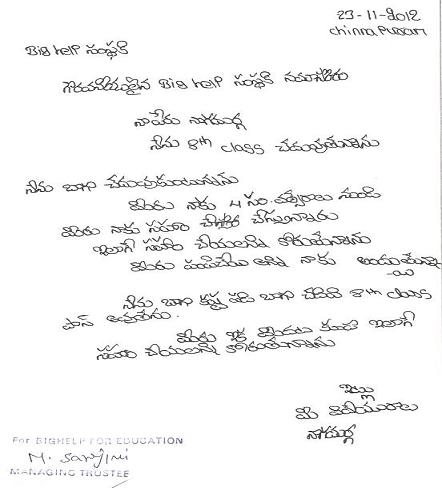 23-11-2012
Big help సంస్థకి
గౌరవనీయులైన Big help సంస్థకి నమస్కారం
నా పేరు
నేను 8th class చదువుతున్నాను
నేను బాగా చదువుకుంటున్నాను
మీరు నాకు 4 సం. నుండి
మీరు నాకు సహాయం చేస్తున్నారు
ఇలాగే సహాయం చేయాలని కోరుతున్నాను
మీరు పంపినవి అన్ని నాకు
నేను బాగా కష్ట పడి బాగా చదివి 8th class
పాస్ అవుతాను.
మీరు ఇక మీదట కూడా ఇలాగే
సహాయం చేయాలని కోరుతున్నాను
ఇట్లు
మీ విధేయురాలు
For BIGHELP FOR EDUCATION
M.
MANAGING TRUSTEE